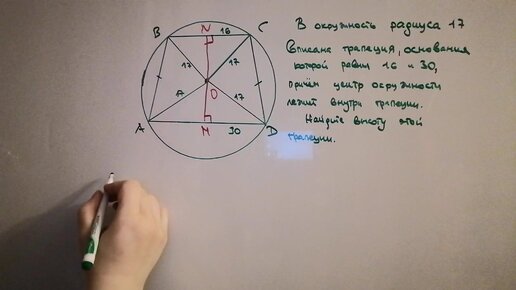 В окружность радиуса 17
вписана трапеция, основания
которой равны 16 и 30,
причём центр окружности
лежит внутри трапеции.
Найдите высоту этой
трапеции.
B N C
16
17 17
O
17
A M D
30